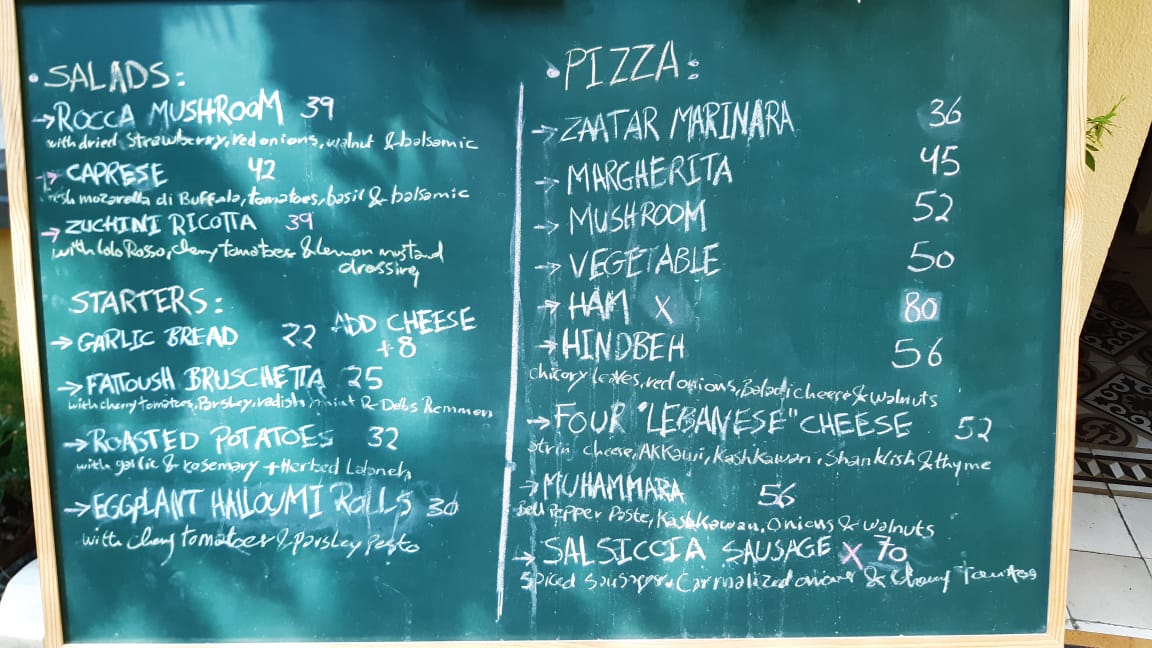 • SALADS:
→ ROCCA MUSHROOM 39
with dried strawberry, red onions, walnut & balsamic
→ CAPRESE 42
fresh mozarella di Buffala, tomatoes, basil & balsamic
→ ZUCHINI RICOTTA 39
with lolo Rosso, cherry tomatoes & lemon mustard
dressing
STARTERS:
→ GARLIC BREAD 22 ADD CHEESE
+8
→ FATTOUSH BRUSCHETTA 25
with cherry tomatoes, Parsley, radish, mint & Debs Remmen
→ ROASTED POTATOES 32
with garlic & rosemary + Herbed Labaneh
→ EGGPLANT HALLOUMI ROLLS 30
with cherry tomatoes & parsley pesto
• PIZZA:
→ ZAATAR MARINARA 36
→ MARGHERITA 45
→ MUSHROOM 52
→ VEGETABLE 50
→ HAM X 80
→ HINDBEH 56
chicory leaves, red onions, Baladi cheese & walnuts
→ FOUR "LEBANESE" CHEESE 52
strin cheese, AKKawi, Kashkawan, Shanklish & thyme
→ MUHAMMARA 56
Bell Pepper Paste, Kashkawan, Onions & walnuts
→ SALSICCIA SAUSAGE X 70
Spiced Sausages, Carmalized onions & Cherry